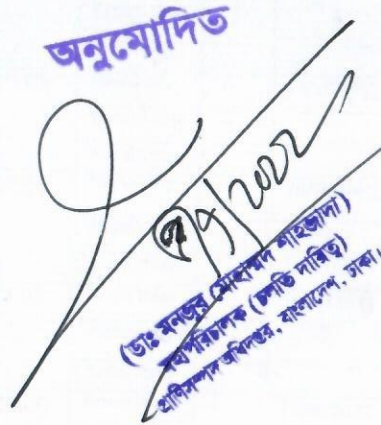 অনুমোদিত
৭/৭/2022
(ডাঃ মনজুর মোহাম্মদ শাহজাদা)
মহাপরিচালক (চলতি দায়িত্ব)
প্রাণিসম্পদ অধিদপ্তর, বাংলাদেশ, ঢাকা।